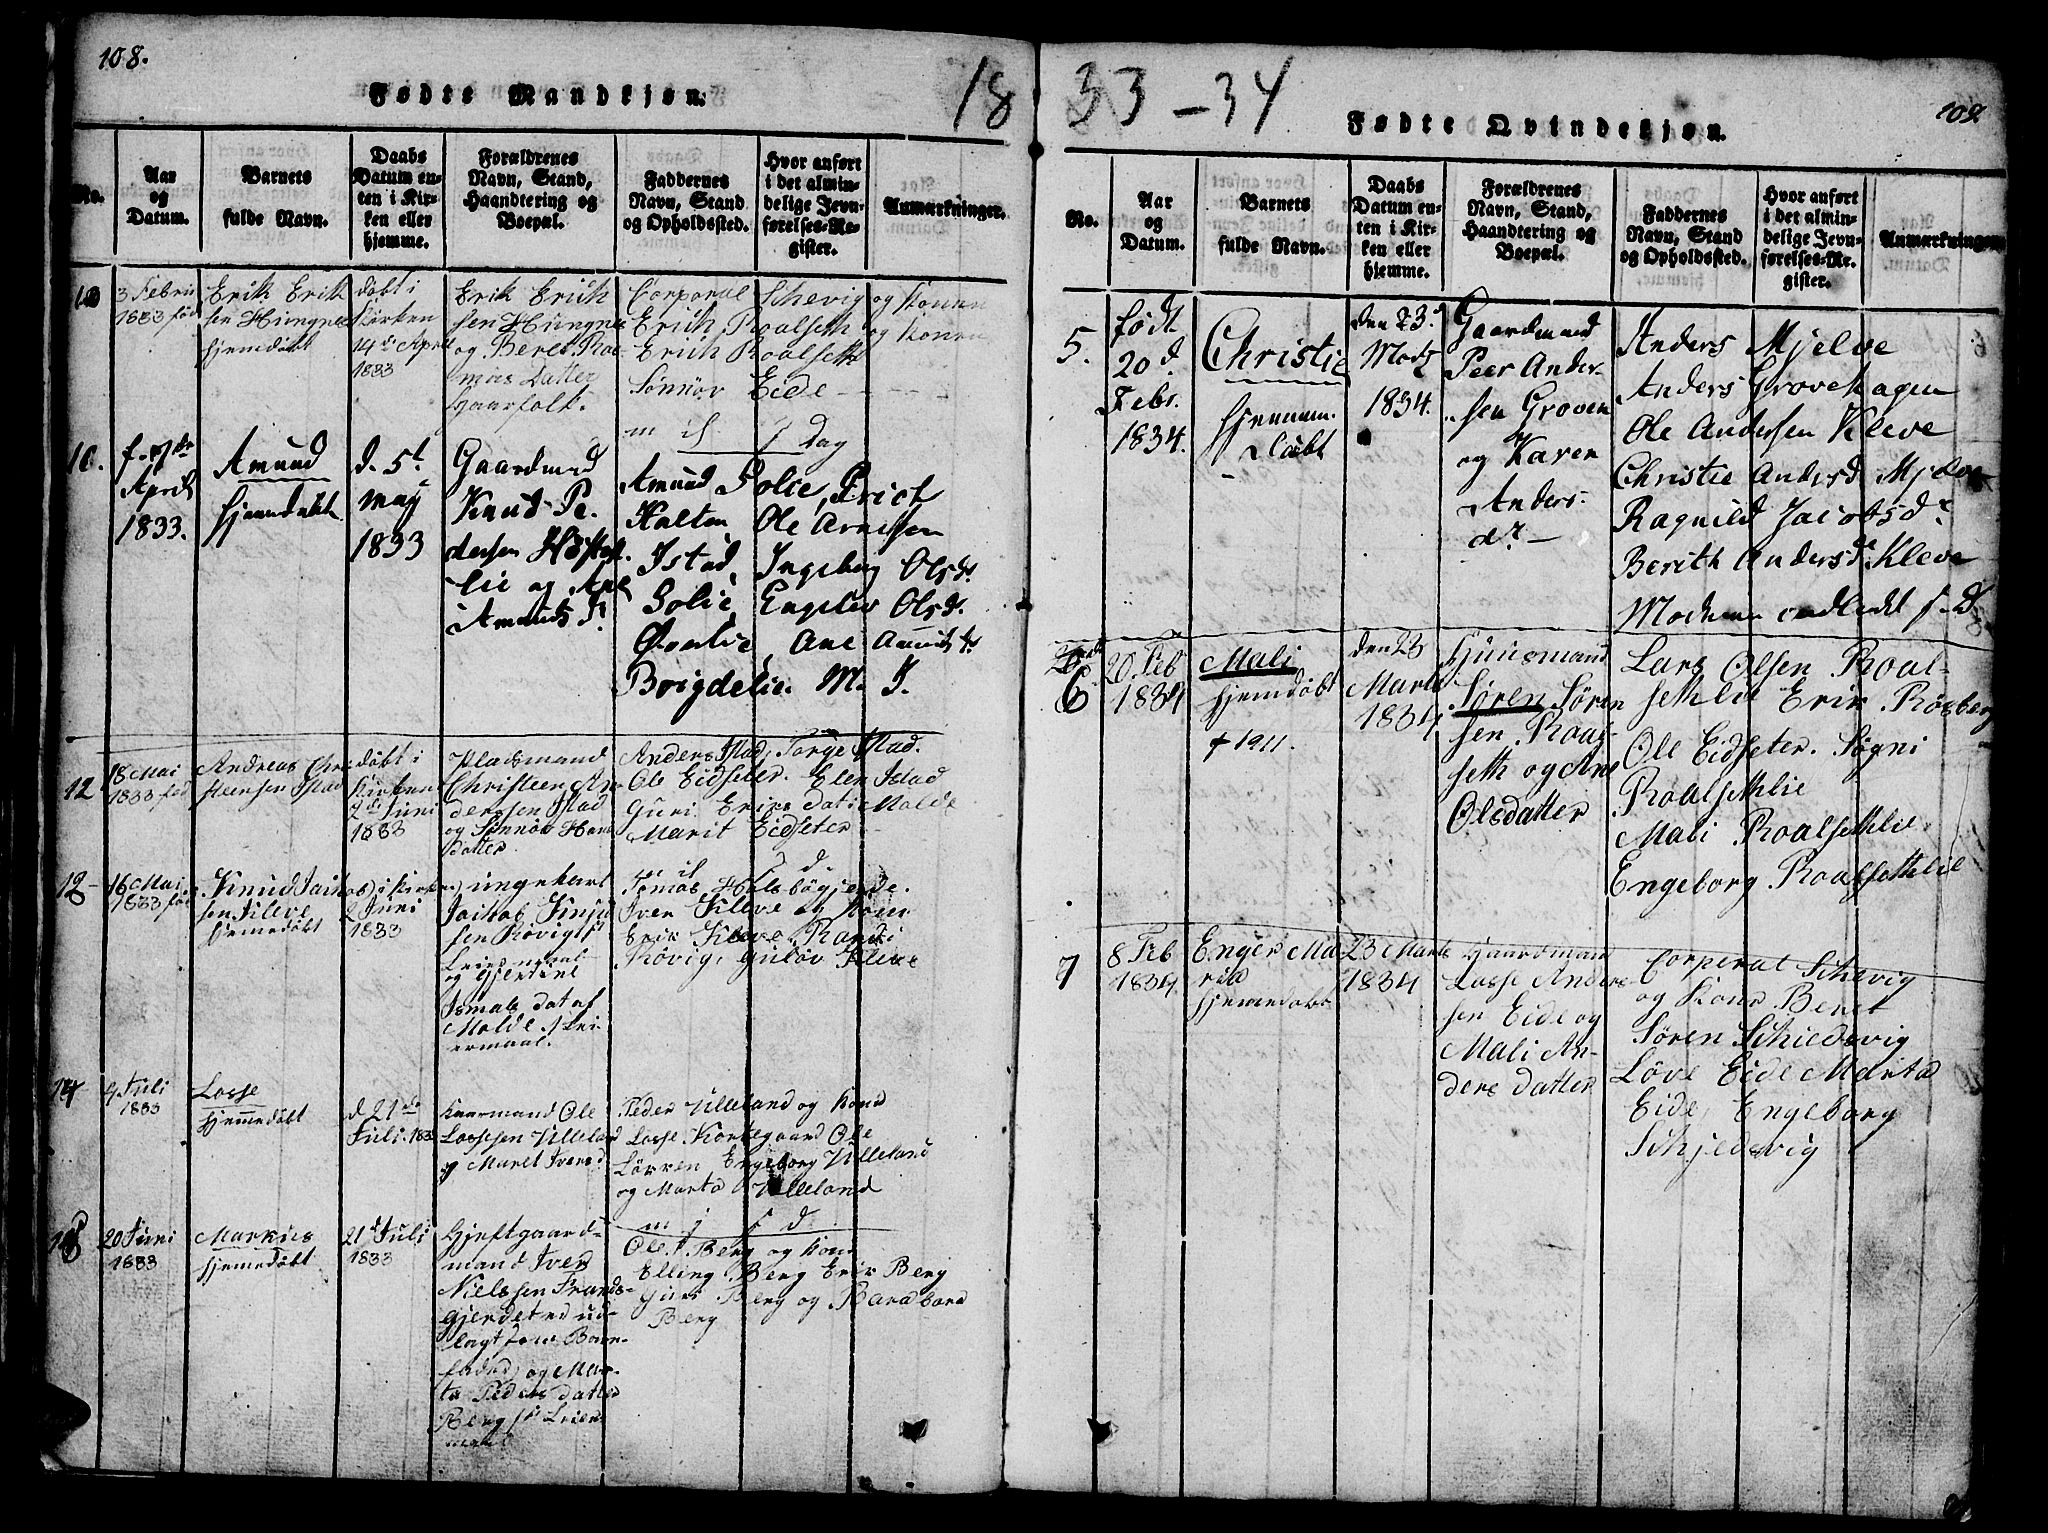 108.
Fødte Mandkjøn.
18
No.
Aar
og
Datum.
Barnets
fulde Navn.
Daabs
Datum en-
ten i Kir-
ken eller
hjemme.
Forældrenes
Navn, Stand,
Haandtering og
Boepæl.
Faddernes
Navn, Stand
og Opholdssted.
Hvor anført
i det almin-
delige Jevn-
førelses-Re-
gister.
Anmærkninger.
10
3 Febru
1833 fød
Erik Erik
sen Hungnes
hjemdøbt
døbt i
Kirken
14de April
1833
Erik Erich
sen Hungnes
og Beret Ras-
mus Datter
Gaarfolk.
Corporal Schevig og Konen
Erich Roalseth og Konen
Erich Roalseth
Sønnøv Eide
Dag
April
1833.
Amund
d. 5t
may
1833
Gaardmand
Knud Pe-
dersen
lie og
Amunds d.
Amund Solie, Erich
Halten Ole Arnessen
Istad Ingeborg Olsdr.
Solie, Engelev Olsdr.
Ane
Boigdelie. M. J.
12
18 Mai
1833 fød
Andreas Chri
steensen Istad
døbt i
Kirken
2de Juni
1833
Pladsmand
Christeen An
derssen Istad
og Sønnøv
datter
Anders Istad, Torge Istad.
Ole Eidseter. Elen Istad
Guri Eriks dat: Molde
Marit Eidseter
16 Mai
1833 fød
Knud Jakob
sen Kleve
hjemedøbt
i Kirken
2 Juni
1833
ungekarl
Jakob Knud
sen Røvig
og Gjertine
Ismals dat af
Molde. Lei
ermaal.
Tomas Hals bøgjerde.
Iver Kleve og Kone
Erik Kleve. Randi
Røvig, Guløv Kleve
14
4 Juli
1833
Lasse
hjemmedøbt
d 21de
Juli 1833
Gaarmand Ole
Lassesen Ulleland
og Maret Iversd
Peder Ulleland og Kone
Lasse Kortgaard Ole
Løkken Engeborg Ulleland
og Marta Ulleland
20 Juni
1833
Markus
hjemedøbt
21de Juli
1833
Gjiftgaard-
mand Iver
Nielssen Frands-
gjerdet er ud-
lagt som Barn-
fader) og Mar-
ta Peders datter
Berg
Leier
maal
m j f d
Ole Berg og Kone
Elling Berg Erik Berg
Guri Berg og Barabara
Berg
33-34
109.
Fødte Qvindekjøn.
No.
Aar
og
Datum.
Barnets
fulde Navn.
Daabs
Datum en-
ten i Kir-
ken eller
hjemme.
Forældrenes
Navn, Stand,
Haandtering og
Boepæl.
Faddernes
Navn, Stand
og Opholdssted.
Hvor anført
i det almin-
delige Jevn-
førelses-Re-
gister.
Anmærkninger.
5.
født
20d.
Febr.
1834.
Christie
hjemme-
døbt
den 23d
Matz
1834.
Gaardmand
Peer Ander-
sen Groven
og Karen
Anders-
dr.
Anders Mjelve
Anders Grovehagen
Ole Andersen Kleve
Christie Andersd Mjelve
Ragnild Jacobsdr
Berith Andersd Kleve
Moderen indledt s. D.
6
20 Feb
1834
Mali
hjemdøbt
† 1911.
den 23
Marts
1834
Huusmand
Søren Søren
sen Roal-
seth og Ane
Olsdatter
Lars Olsen Roal-
sethlie Erik Røsberg
Ole Eidseter. Søgni
Roalsethlie
Mali Roalsethlie
Engeborg Roalsethlie
7
8 Feb
1834
Enger Ma
ria
hjemedøbt
23 Marts
1834
Gaardmand
Lasse Anders
sen Eide og
Mali An-
ders datter
Corperal Schevig
og Kone Beret
Søren Schiedsvig
Løve Eide Marta
Eide, Engeborg
Schjedsvig